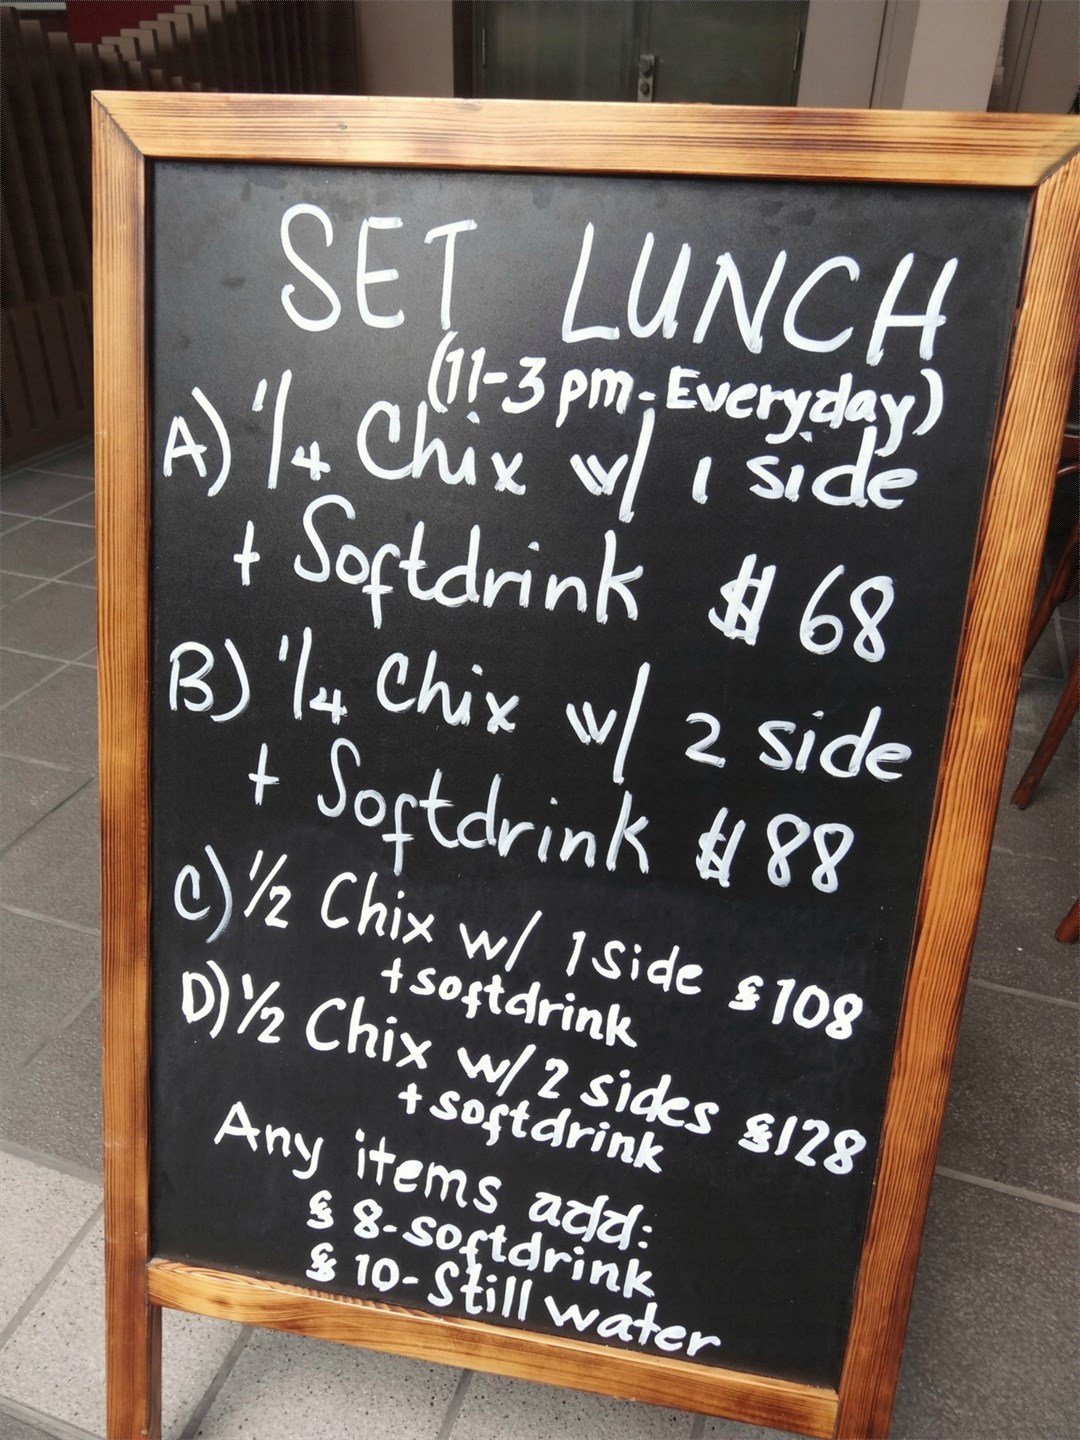 SET LUNCH
(11-3 pm-Everyday)
A) 1/4 Chix w/ 1 side
+ Softdrink $ 68
B) 1/4 Chix w/ 2 side
+ Softdrink $ 88
C) 1/2 Chix w/ 1 side $108
+ softdrink
D) 1/2 Chix w/ 2 sides $128
+ softdrink
Any items add:
$ 8-softdrink
$ 10-Still water